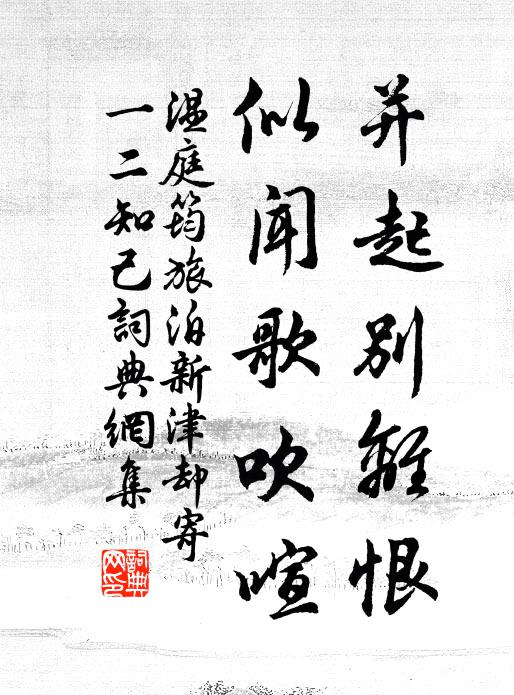 并起别離恨
似聞歌吹喧
温庭筠旅泊新津却寄
一二知己詞典網集
詞典网印